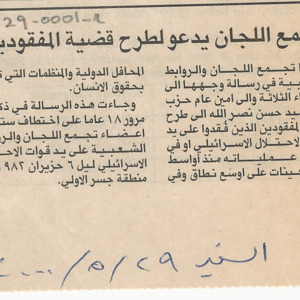 29-0001-R
جمع اللجان يدعو لطرح قضية المفقودي
ا تجمع اللجان والروابط
ية في رسالة وجهها الى
اء الثلاثة والى امين عام حزب
يد حسن نصر الله الى طرح
المفقودين الذين فقدوا على يد
لاحتلال الاسرائيلي او في
عملياته منذ أواسط
حينات على اوسع نطاق وفي
المحافل الدولية والمنظمات التي ت
بحقوق الانسان.
وجاءت هذه الرسالة في ذك
مرور ١٨ عاما على اختطاف ست
اعضاء تجمع اللجان والرو
الشعبية على يد قوات الاحـ
الاسرائيلي ليل ٦ حزيران ١٩٨٢
منطقة جسر الاولي.
السفير ٢٩/٥/٢٠٠٠